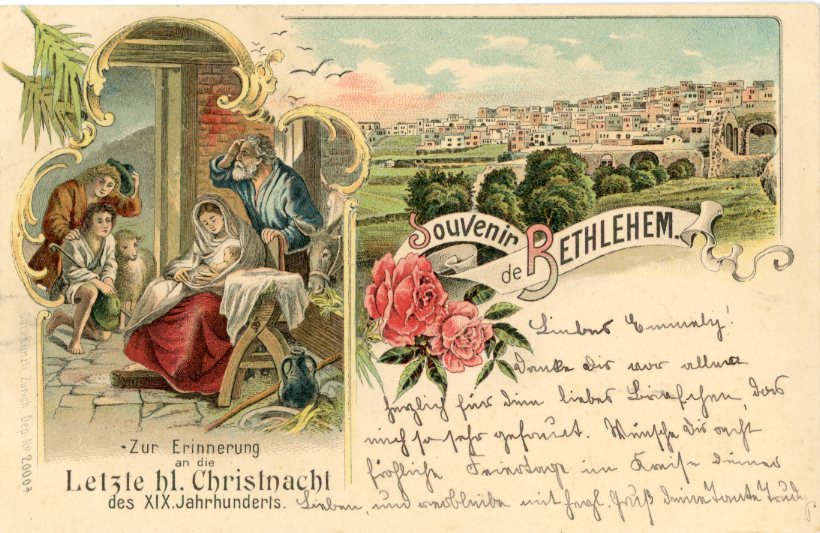 Souvenir
de BETHLEHEM.
Liebes Emmely!
Danke dir vor allem
herzlich für dein liebes Briefchen, das
mich so sehr gefreut. Wünsche dir recht
fröhliche Feiertage im Kreise deiner
Lieben, und verbleibe mit herzl. Gruß deine Tante Trudy
Zur Erinnerung
an die
Letzte hl. Christnacht
des XIX. Jahrhunderts.
Künzli Zürich Dep. No